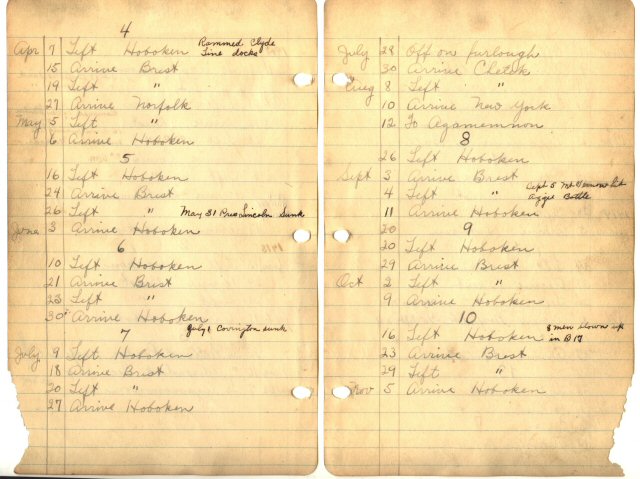 4
Apr 7 Left Hoboken Rammed Clyde Line docks
15 Arrive Brest
19 Left "
27 Arrive Norfolk
May 5 Left "
6 Arrive Hoboken
5
16 Left Hoboken
24 Arrive Brest
26 Left " May 31 Pres Lincoln Sunk
June 3 Arrive Hoboken
6
10 Left Hoboken
21 Arrive Brest
23 Left "
30 Arrive Hoboken
7 July 1 Covington sunk
July 9 Left Hoboken
18 Arrive Brest
20 Left "
27 Arrive Hoboken
July 28 Off on furlough
30 Arrive Chetek
Aug 8 Left "
10 Arrive New York
12 To Agamemnon
8
26 Left Hoboken
Sept 3 Arrive Brest
4 Left " Sept 5 Mt Vernon hit
11 Arrive Hoboken
20 9
20 Left Hoboken
29 Arrive Brest
Oct 2 Left "
9 Arrive Hoboken
10
16 Left Hoboken 8 men blown up in B 17
23 Arrive Brest
29 Left "
Nov 5 Arrive Hoboken